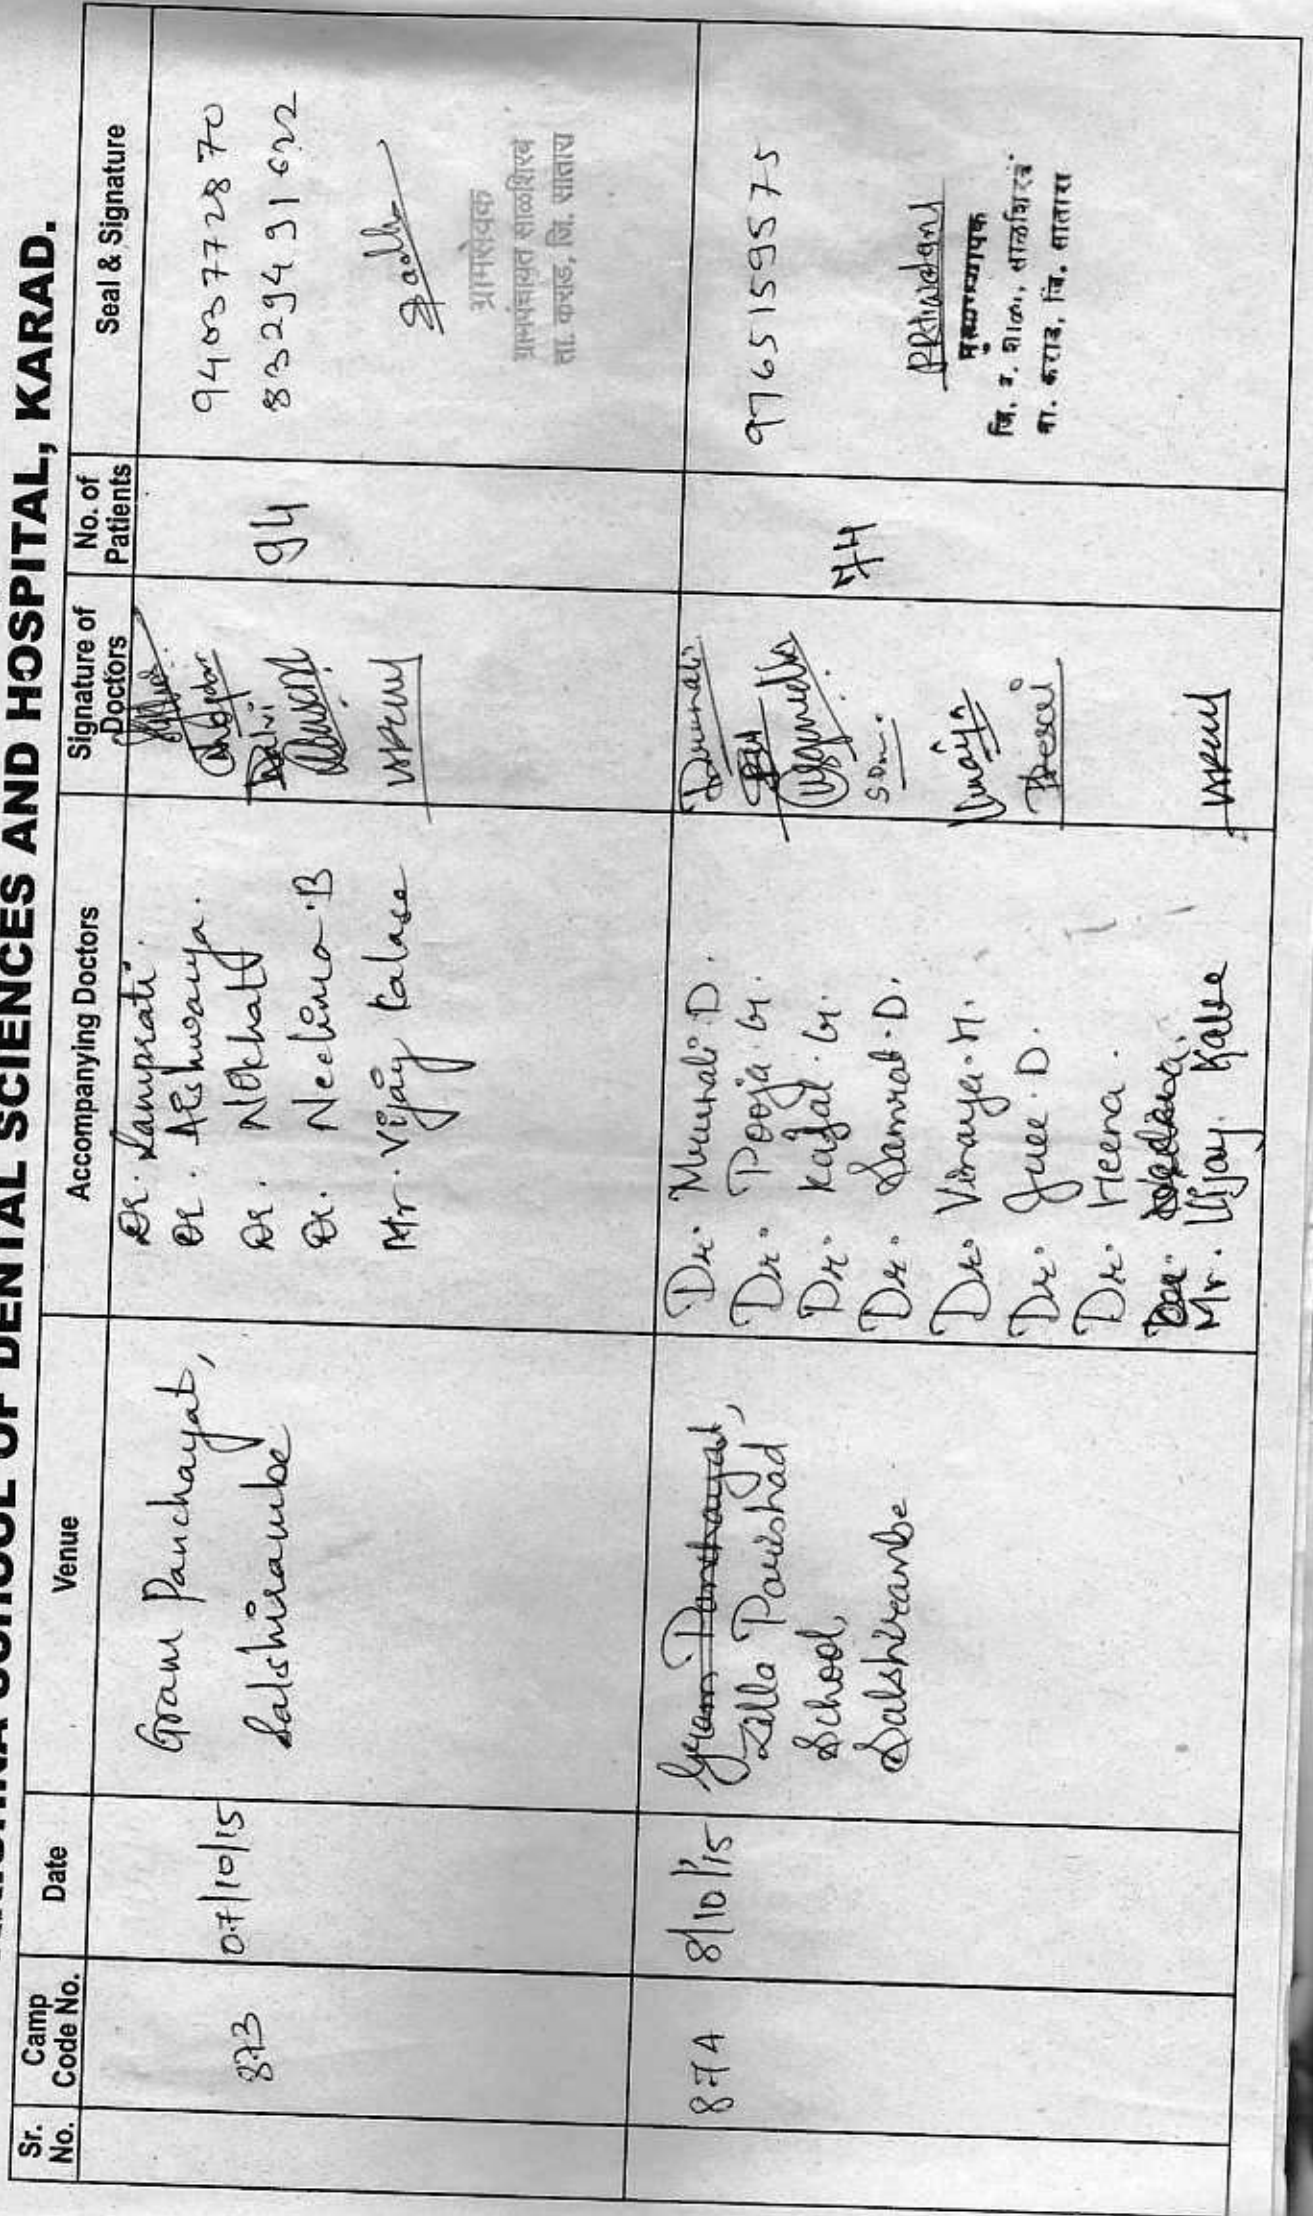 SCHOOL OF DENTAL SCIENCES AND HOSPITAL, KARAD.
Sr. No.
Camp Code No.
Date
Venue
Accompanying Doctors
Signature of Doctors
No. of Patients
Seal & Signature
873
07/10/15
Gram Panchayat,
Salshirambe
Dr.
Dr. Aishwarya.
Dr. Nikhat
Dr. Neelima.B
Mr. Vijay Kalase
Dalvi
94
9403772870
8329491622
ग्रामसेवक
ग्रामपंचायत साळशिरंबे
ता. कराड, जि. सातारा
874
8/10/15
Gram Panchayat,
Zilla Parishad
School,
Salshirambe
Dr. Mrunali D.
Dr. Pooja G.
Dr. Kajal G.
Dr. Samrat D.
Dr. Vinaya H.
Dr. Juee D.
Dr. Heena.
Mr. Vijay
Mrunali
Vinaya
74
9765159575
मुख्याध्यापक
जि. प. शाळा, साळशिरंबे
ता. कराड, जि. सातारा